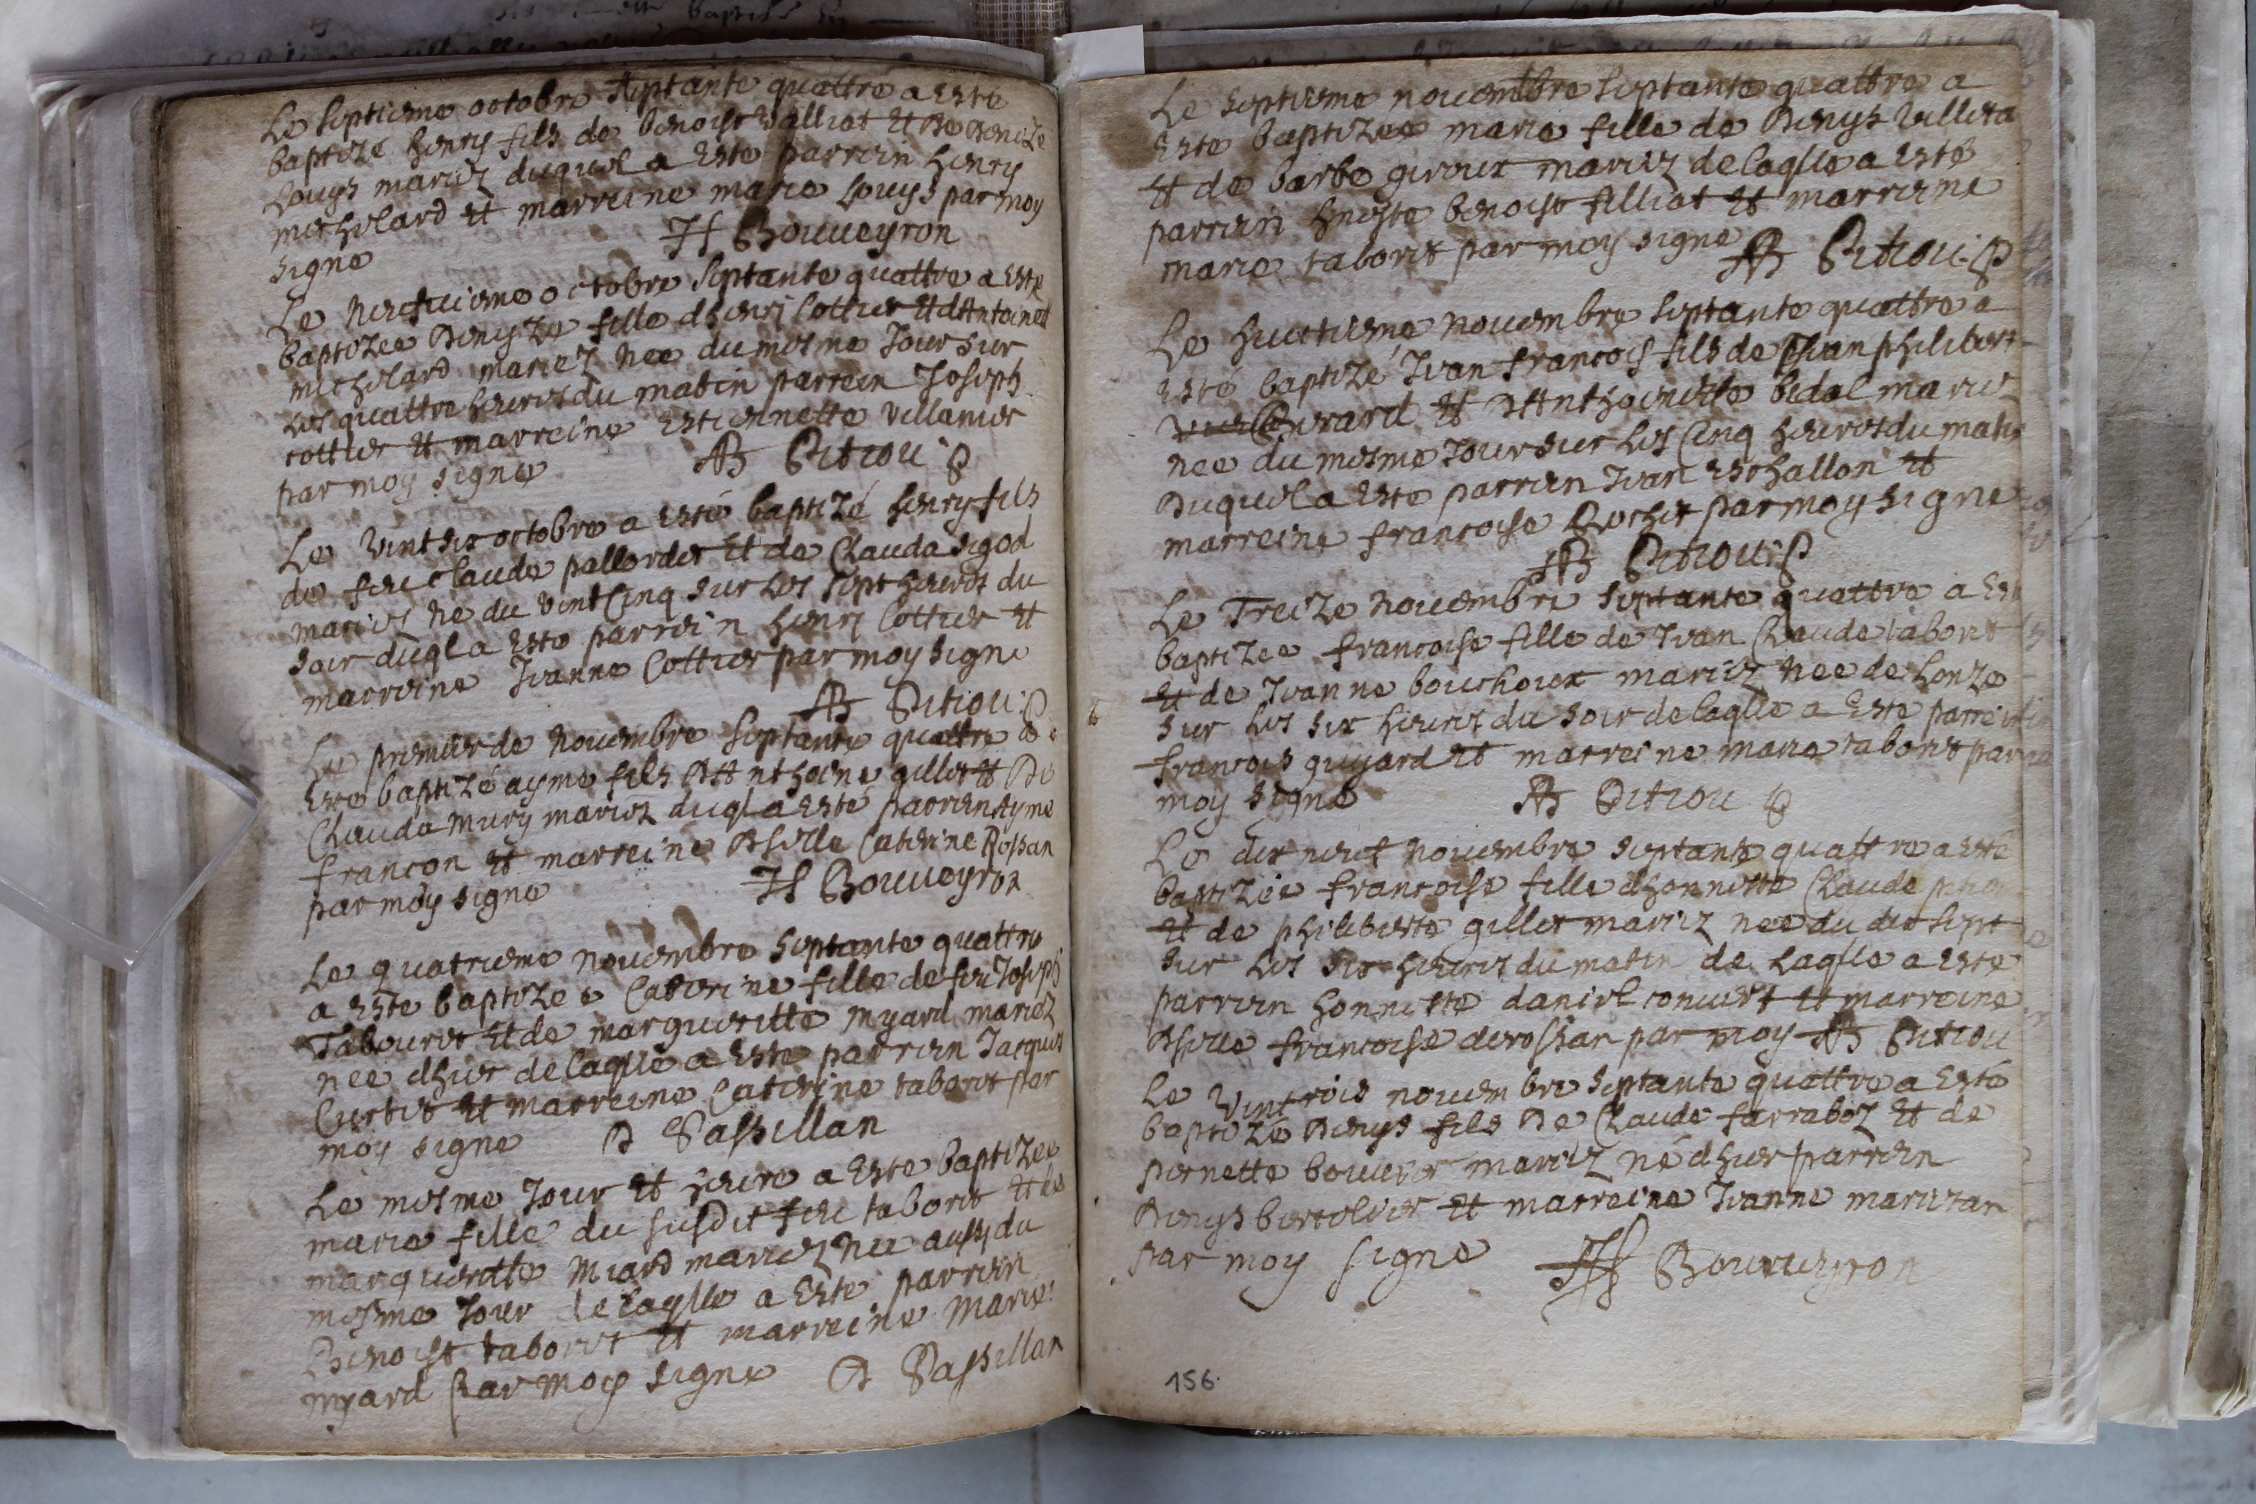 Le septiesme octobre septante quattre a esté
baptizé henry fils de benoist Valliat et de denize
Louys mariez duquel a este parrein henry
michelard et marreine marie Louys par moy
signe H Bouveyron
Le huictiesme octobre septante quattre a este
baptizee denyze fille dhenrj Cottier et dAntoinet
michelard mariez nee du mesme Jour sur
les quattre heures du matin parrein Joseph
cottier et marreine estiennette Villanier
par moy signe AB Pitiou
Le Vint six octobre a esté baptizé henry fils
de feu Claude pallordet et de Clauda sigod
mariez né du vint Cinq sur les sept heures du
soir duql a este parrein henrj Cottier et
marreine Jeanne Cottier par moy signe
AB Pitiou
Le premier de novembre septante quattre a
este baptizé ayme fils dAnthoine gillet et de
Clauda mury mariez duql a esté parrein Ayme
francon et marreine dselle Caterine Rossan
par moy signe H Bouveyron
Le quatriesme novembre septante quattre
a este baptizee Caterine fille de feu Joseph
Tabouret et de margueritte myard mariez
nee dhier de laqlle a este parrein Jacques
Curtit et marreine Caterine taboret par
moy signe D Passillan
Le mesme Jour et heure a este baptizee
marie fille du susdit feu taboret et de
marguerite Miard mariez nee aussj du
mesme Jour de laqlle a este parrein
Benoist taboret et marreine Marie
myard par moy signe D Passillan
Le septiesme novembre septante quattre a
este baptizee marie fille de denys Villeta
et de barbe giroux mariez de laqlle a esté
parrein hneste benoist filliat et marreine
marie taboret par moy signe AB Pitiou
Le huictiesme novembre septante quattre a
esté baptizé Jean francois fils de Jean philibert
Evrard et dAnthoinette bidal mariez
nee du mesme Jour sur les Cinq heures du matin
duquel a este parrein Jean eschallon et
marreine francoise Rochet par moy signe
AB Pitiou
Le Treize novembre septante quattre a este
baptizee francoise fille de Jean Claude taboret
et de Jeanne bouchoux mariez nee de honze
sur les six heures du soir de laqlle a este parrein
francois guyard et marreine marie taboret par
moy signe AB Pitiou
Le dix neuf novembre septante quattre a esté
baptizée francoise fille dhonneste Claude
et de philiberte gillet mariez nee du dix sept
sur les six heures du matin de laqlle a este
parrein honneste daniel convert et marreine
dselle francoise derossan par moy AB Pitiou
Le Vint trois novembre septante quattre a esté
baptizé denys fils de Claude farraboz et de
pernette bouvier mariez né dhier parrein
denys bertolier et marreine Jeanne marezan
par moy signe H Bouveyron
156.